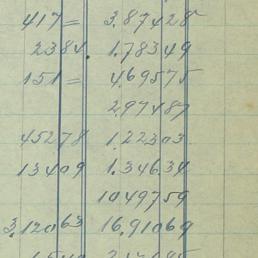 417 = 3.87428
2384. 1.78349
151 = 4.69575
2.97487
45278 1.22303
13409 1.34634
1049759
3.12063 16.91069